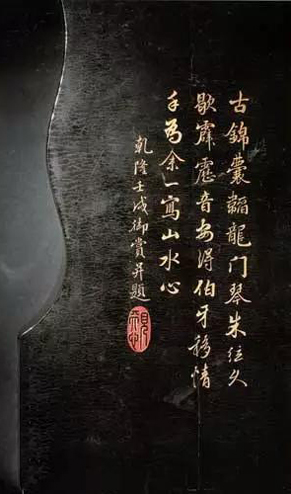 古錦囊韜龍門琴朱絃久
歇霹靂音安得伯牙移情
手為余一寫山水心
乾隆壬戌御賞并題